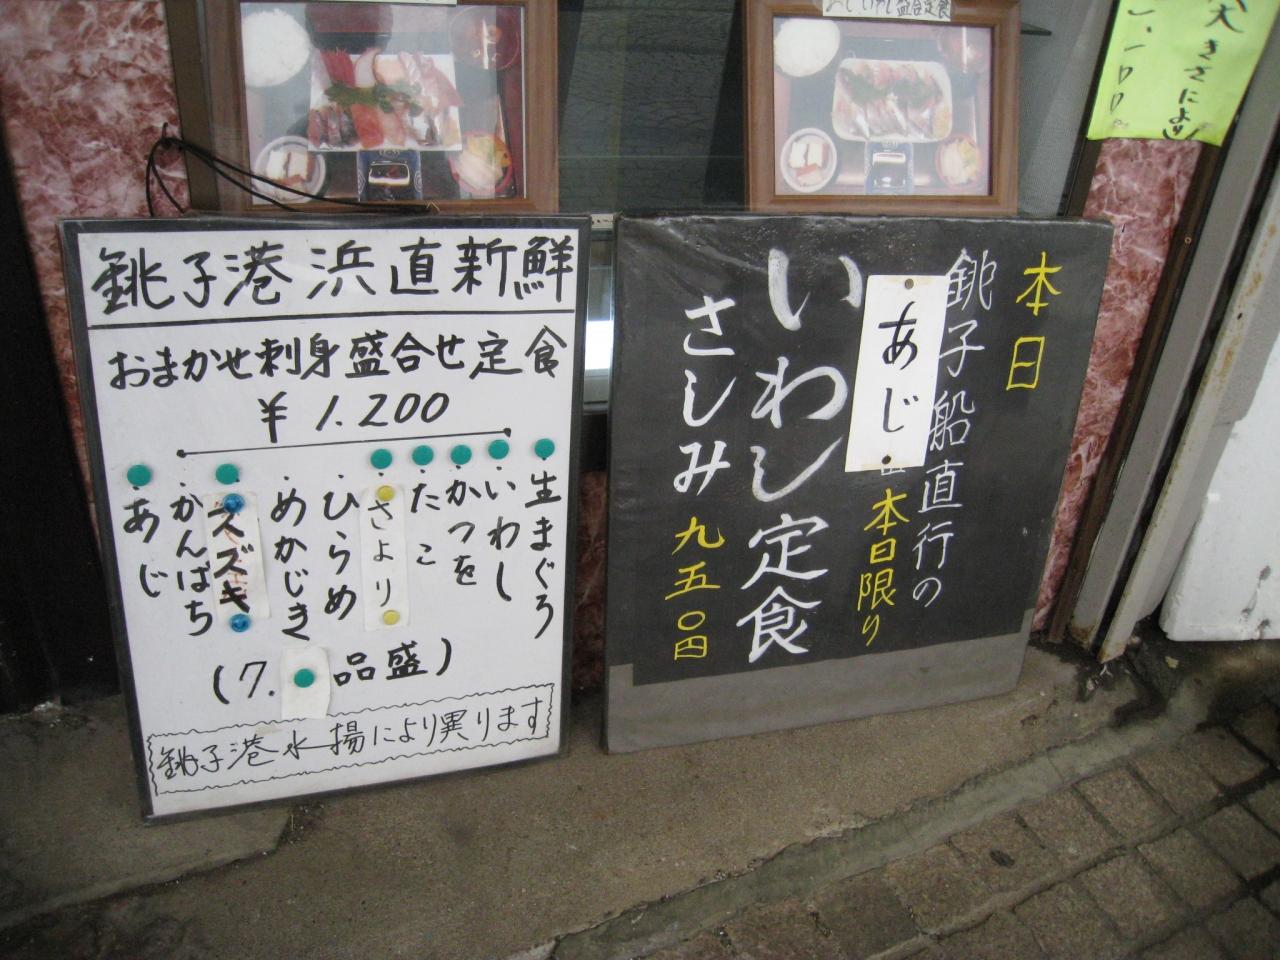 銚子港浜直新鮮
おまかせ刺身盛合せ定食
￥1.200
生まぐろ
・いわし
・かつを
・たこ
・さより
・ひらめ
・めかじき
・スズキ
・かんばち
・あじ
(7. 品盛)
銚子港水揚により異ります
本日
銚子船直行の
あじ・
本日限り
いわし定食
さしみ 九五〇円
あじいわし盛合定食
大きさにより